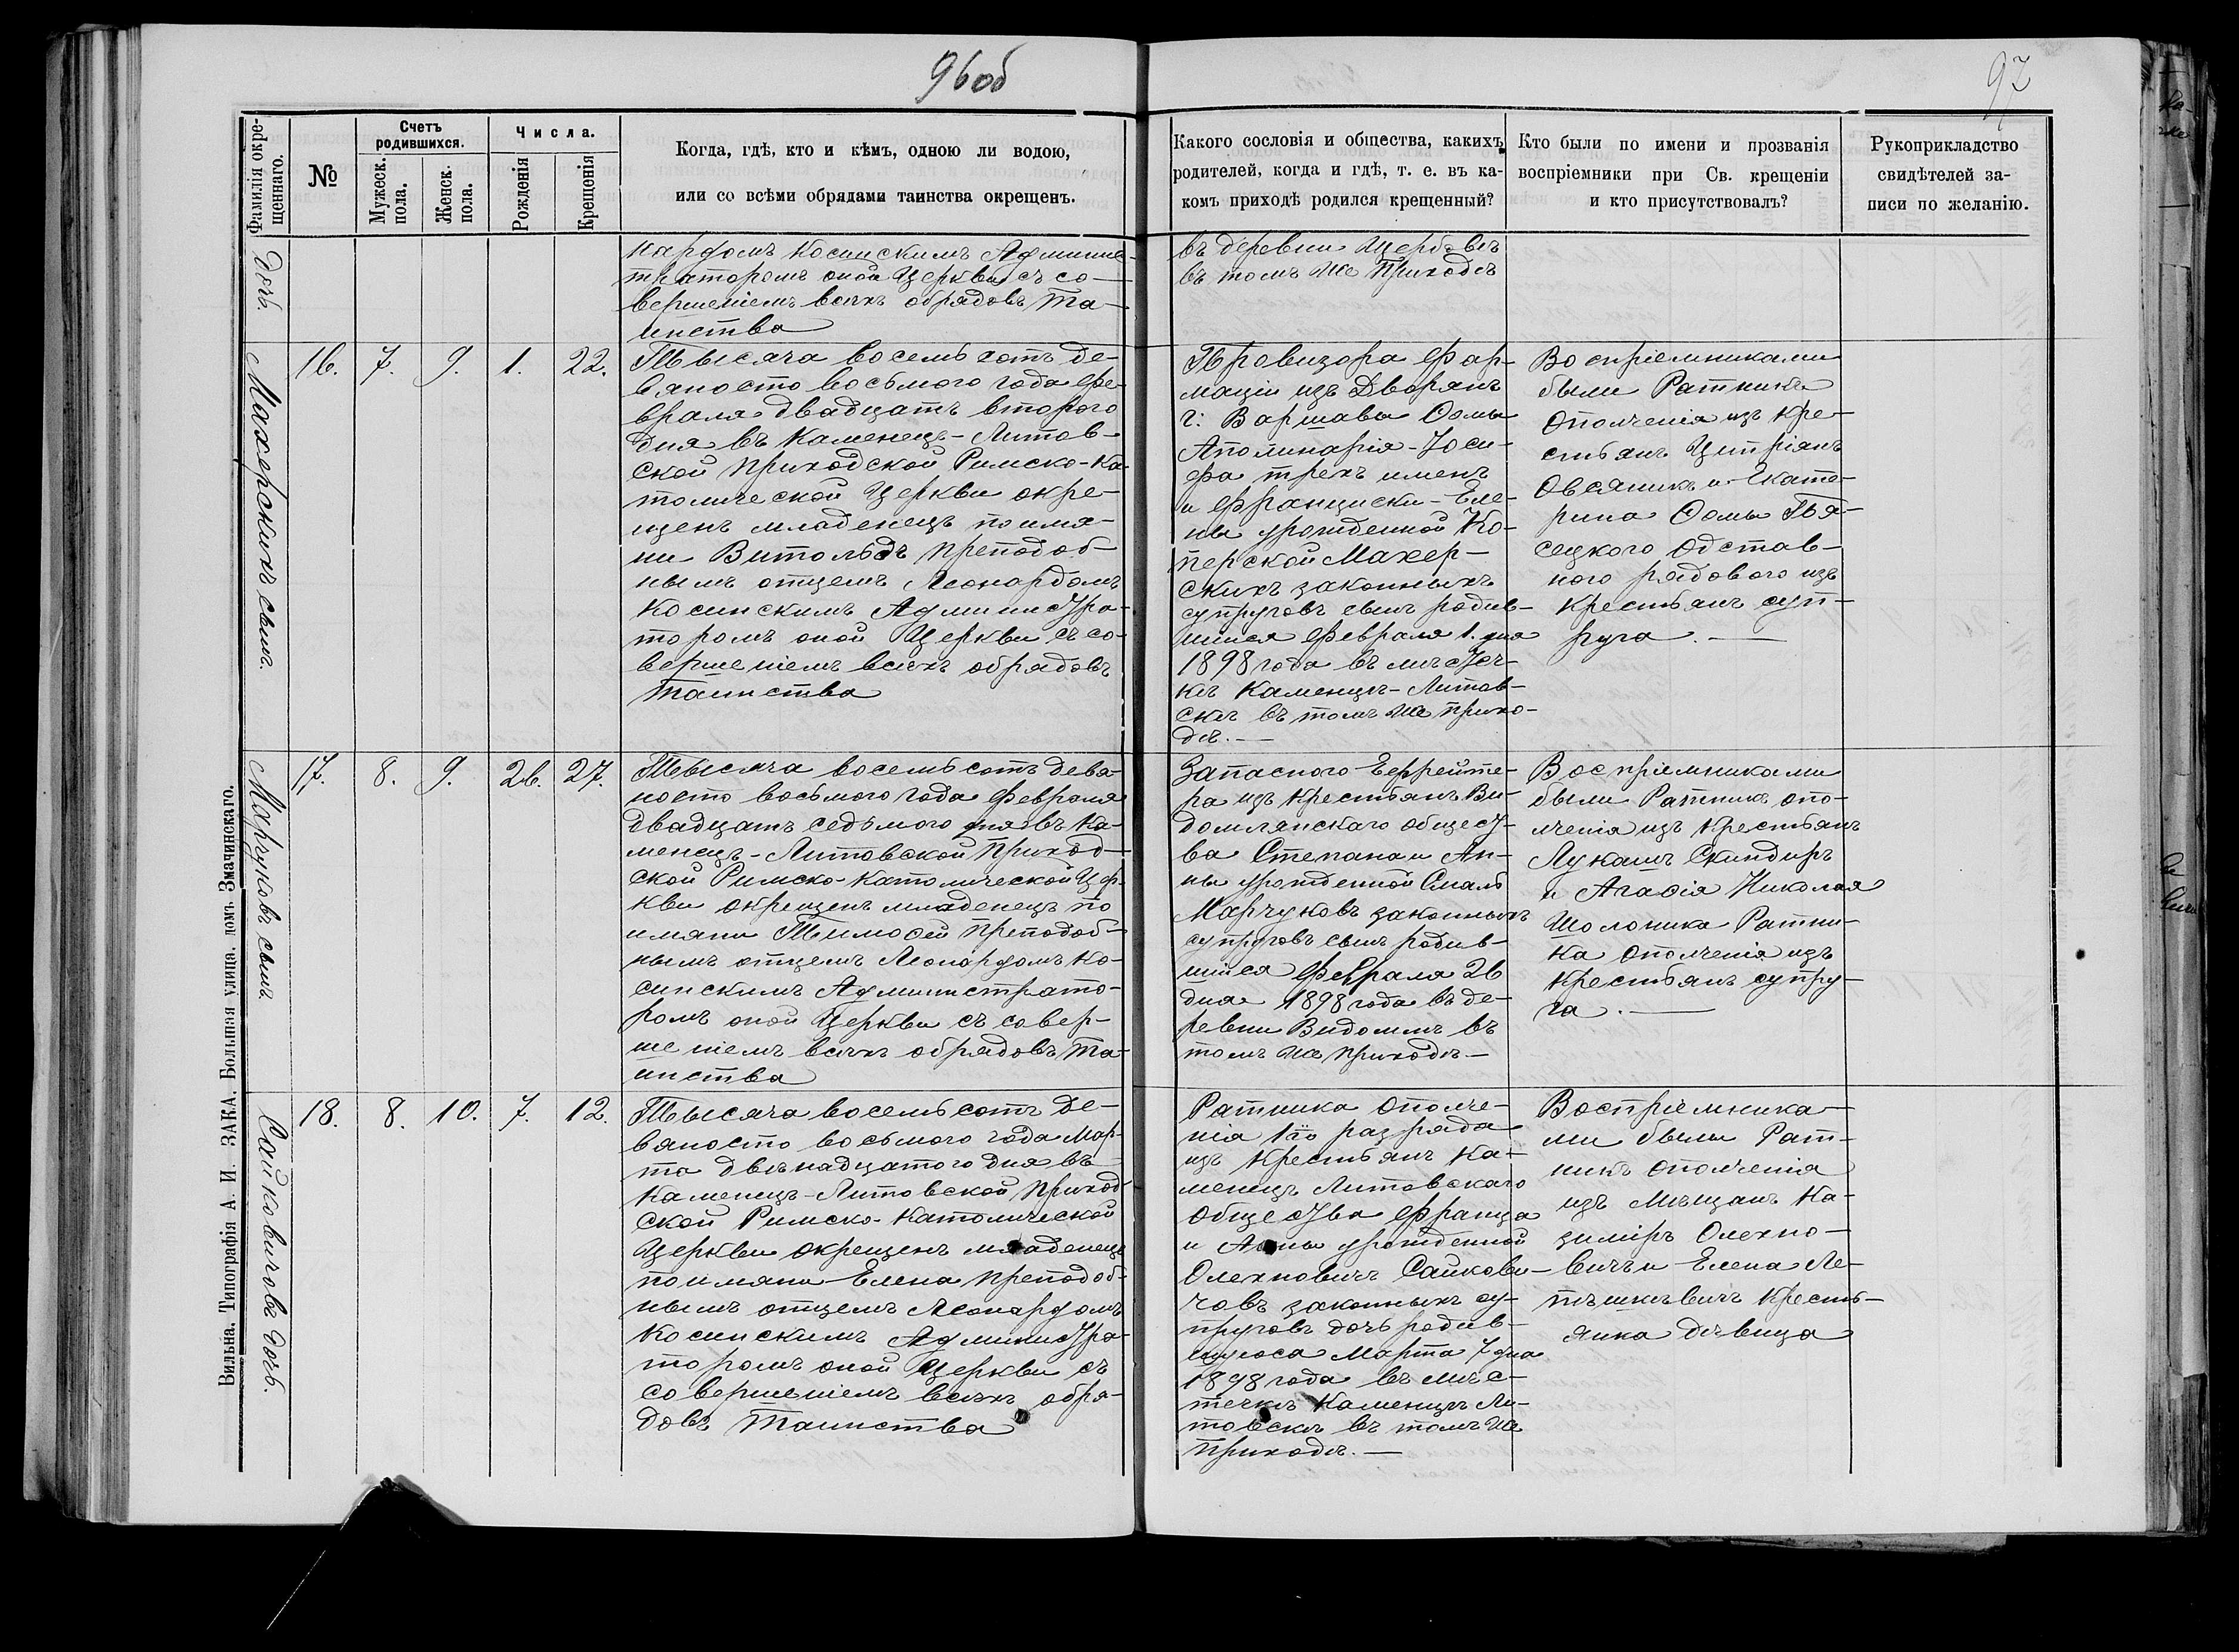 96об
97
Фамилія окре-
щеннаго.
№
Счетъ
родившихся.
Мужеск.
пола.
Женск.
пола.
Числа.
Рожденія
Крещенія
Когда, гдѣ, кто и кѣмъ, одною ли водою,
или со всѣми обрядами таинства окрещенъ.
Какого сословія и общества, какихъ
родителей, когда и гдѣ, т. е. въ ка-
комъ приходѣ родился крещенный?
Кто были по имени и прозванія
воспріемники при Св. крещеніи
и кто присутствовалъ?
Рукоприкладство
свидѣтелей за-
писи по желанію.
дочь.
нардомъ Косинскимъ Админис-
траторомъ оной Церкви съ со-
вершеніемъ всѣхъ обрядовъ Та-
инства
въ деревни
въ томъ же Приходѣ
Махерскихъ сынъ.
16.
7.
9.
1.
22.
Тысяча восемьсотъ де-
вяносто восьмого года Фе-
враля двадцать второго
дня въ Каменецъ-Литов-
ской Приходской Римско-Ка-
толической Церкви окре-
щенъ младенецъ по имя-
ни Витольдъ преподоб-
нымъ отцемъ Леонардомъ
Косинскимъ Администра-
торомъ оной Церкви съ со-
вершеніемъ всѣхъ обрядовъ
Таинства
Провизора Фар-
маціи изъ Дворянъ
г: Варшавы Ѳомы
Аполинарія-Іоси-
фа трехъ именъ
и Франциски-Еле-
ны урожденной Ко-
перской Махер-
скихъ законныхъ
супруговъ сынъ родив-
шійся Февраля 1. дня
1898 года въ мѣстеч-
кѣ Каменцѣ-Литов-
скѣ въ томъ же прихо-
дѣ.—
Воспріемниками
были Ратникъ
Ополченія изъ Кре-
стьянъ Ципріянъ
Овсяникъ и Екате-
рина Ѳомы Пя-
сецкого Одстав-
ного рядового изъ
Крестьянъ суп-
руга.—
Марчуковъ сынъ
17.
8.
9.
26.
27.
Тысяча восемьсотъ девя-
носто восьмого года Февраля
двадцать седьмого дня въ Ка-
менецъ-Литовской Приход-
ской Римско-Католической Цер-
кви окрещенъ младенецъ по
имяни Тимоѳей преподоб-
нымъ отцемъ Леонардомъ Ко-
синскимъ Администрато-
ромъ оной Церкви съ совер-
шеніемъ всѣхъ обрядовъ Та-
инства
Запасного Ефрейте-
ра изъ Крестьянъ Ви-
домлянскаго общест-
ва Степана и Ан-
ны урожденной Смаль
Марчуковъ законныхъ
супруговъ сынъ родив-
шійся Февраля 26
дня 1898 года въ де-
ревни Видомлѣ въ
томъ же приходѣ—
Воспріемниками
были Ратникъ опо-
лченія изъ Крестьянъ
Лукашъ Скиндиръ
и Агаѳія Николая
Шолоника Ратни-
ка Ополченія изъ
Крестьянъ супру-
га.—
Сайковичовъ дочь.
18.
8.
10.
7.
12.
Тысяча восемьсотъ де-
вяносто восьмого года Мар-
та двѣнадцатого дня въ
Каменецъ-Литовской Приход-
ской Римско-Католической
Церкви окрещенъ младенецъ
по имяни Елена преподоб-
нымъ отцемъ Леонардомъ
Косинскимъ Администра-
торомъ оной Церкви съ
совершеніемъ всѣхъ обря-
довъ Таинства
Ратника Ополче-
нія 1го разряда
изъ Крестьянъ Ка-
менецъ Литовскаго
Общества Франца
и Анны урожденной
Олехновичъ Сайкови-
човъ законныхъ су-
пруговъ дочь родив-
шуюса Марта 7 дня
1898 года въ мѣс-
течкѣ Каменцѣ Ли-
товскѣ въ томъ же
приходѣ.—
Воспріемника-
ми были Рат-
никъ Ополченія
изъ Мѣщанъ Ка-
зиміръ Олехно-
вичъ и Елена Ле-
пѣшкѣвичъ Кресть-
янка дѣвица
Вильна, Типографія А. И. ЗАКА, Большая улица, домъ Змачинскаго.